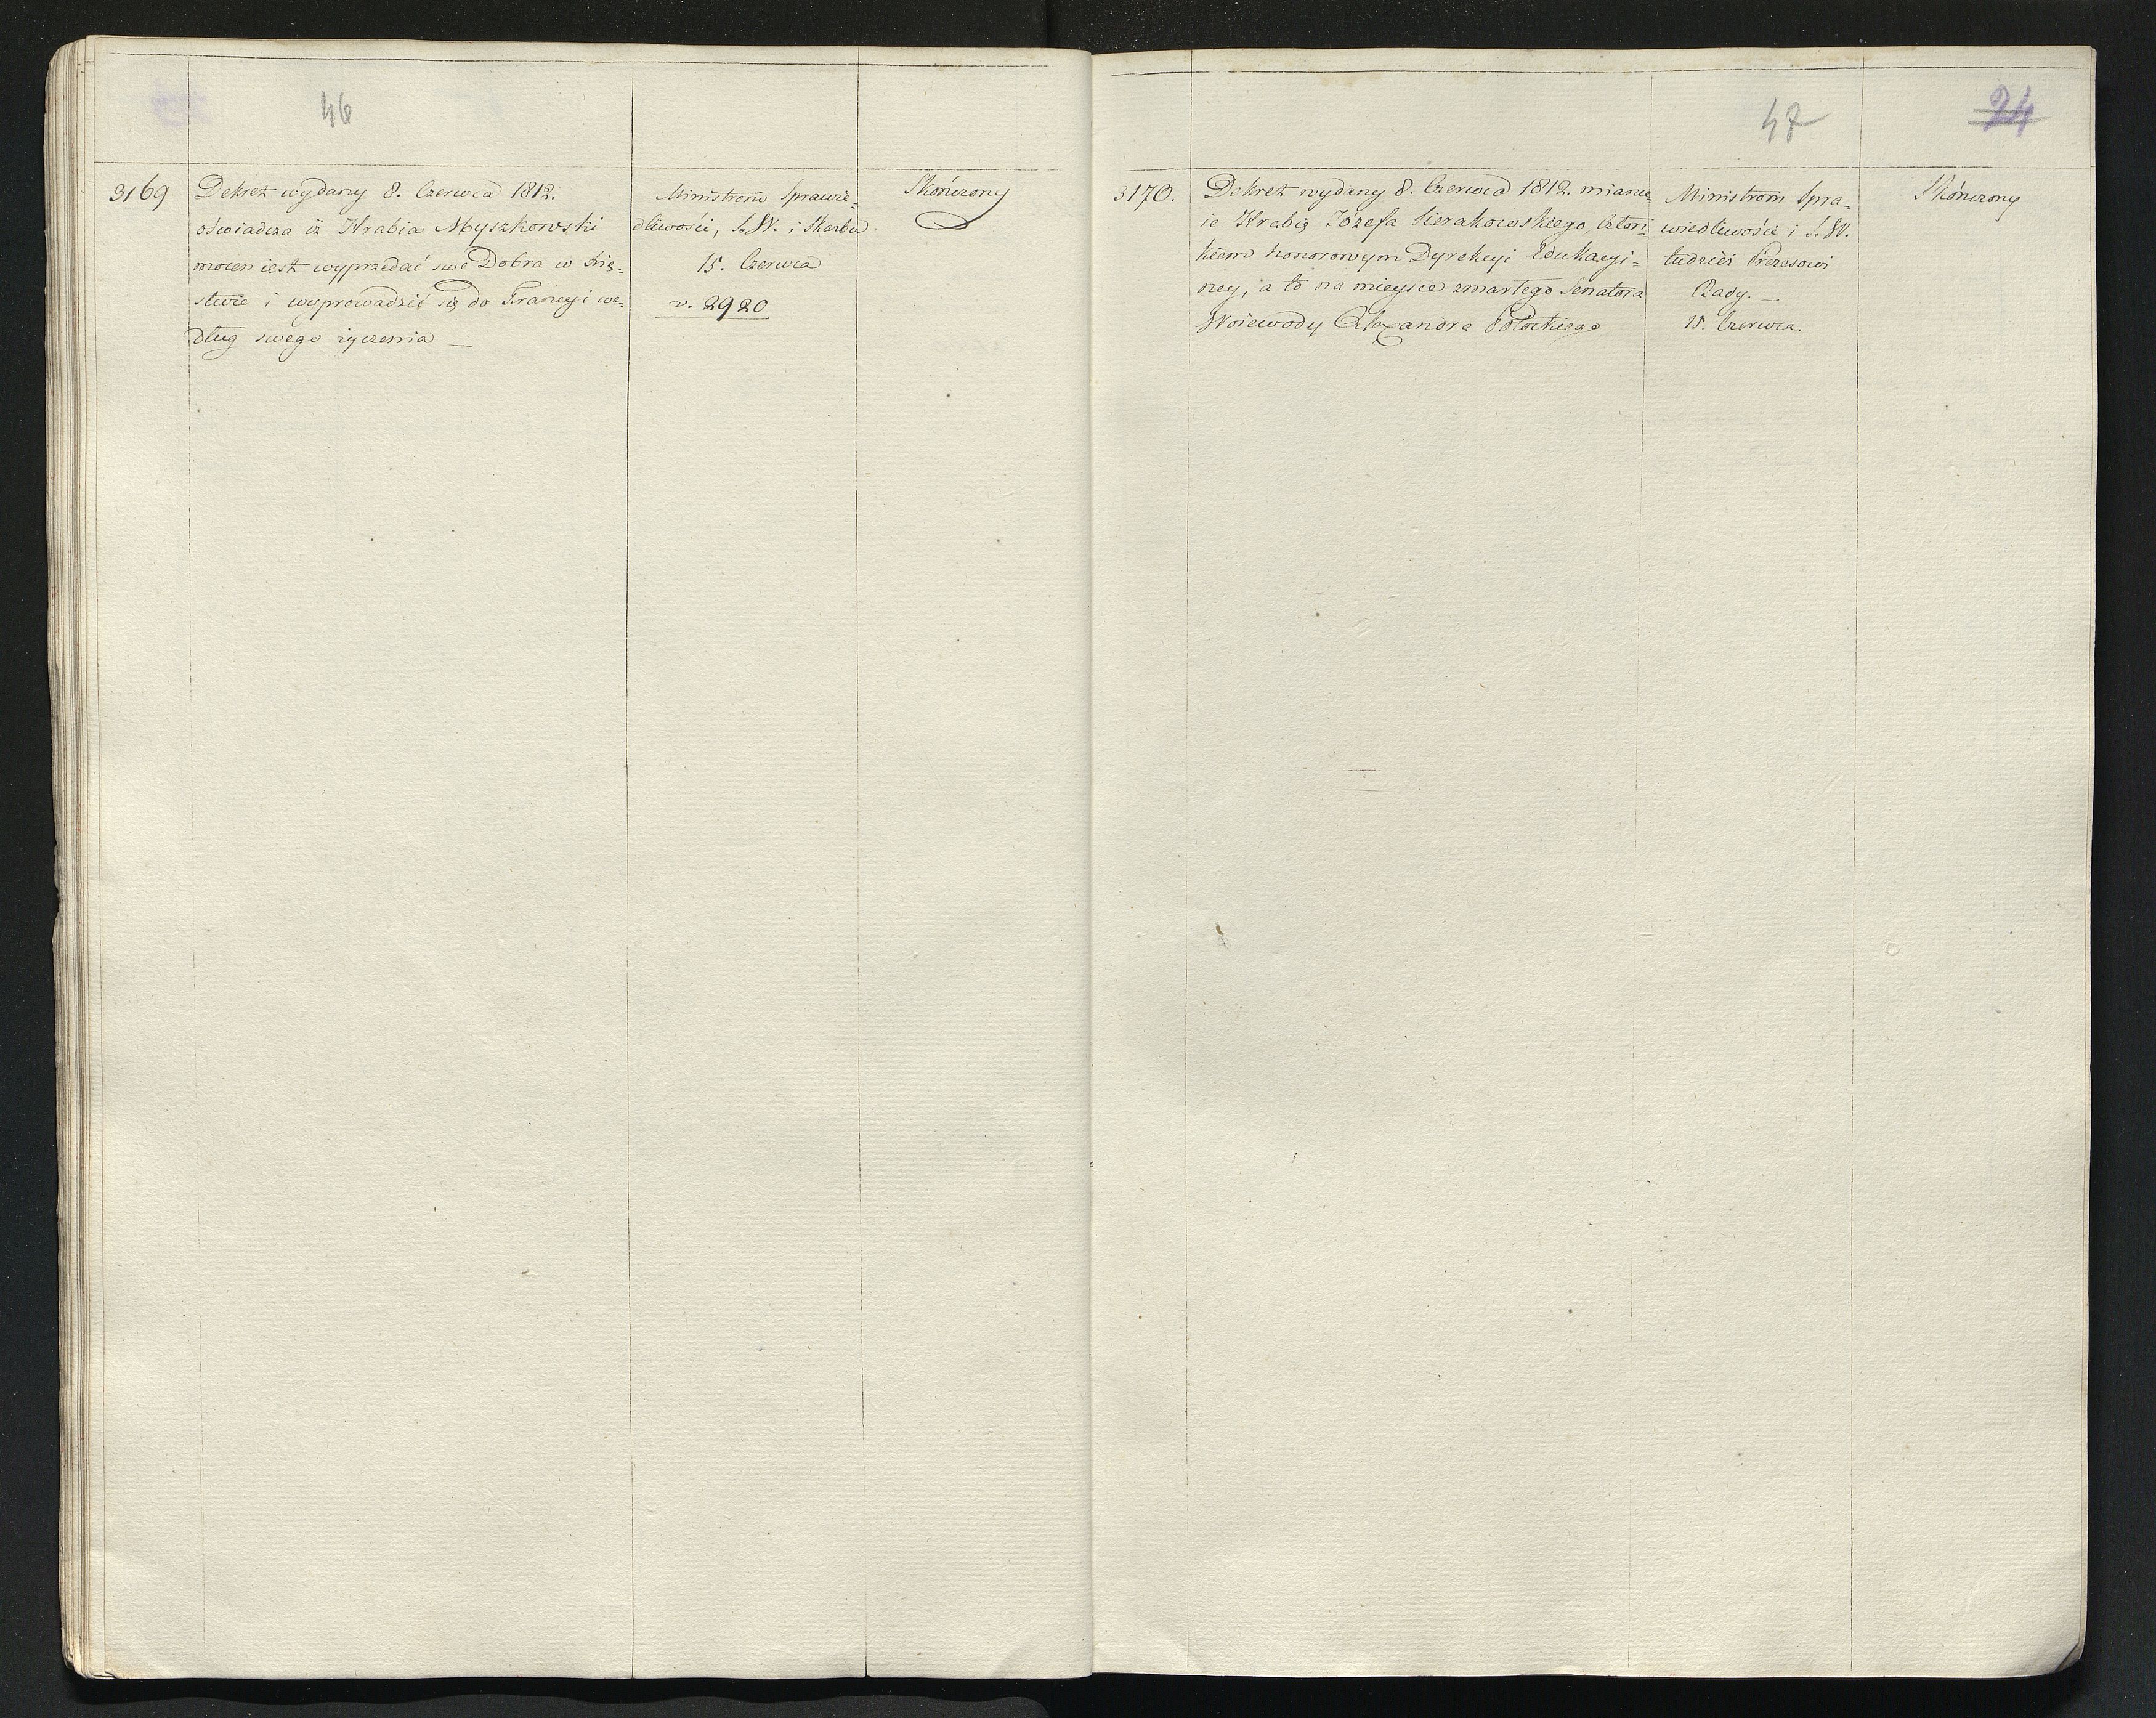 46
3169
Dekret wydany 8. Czerwca 1812.
oświadcza iż Hrabia Myszkowski
mocen iest wyprzedać swe Dobra w Xię-
stwie i wyprowadzić się do Francyi we-
dług swego życzenia —
Ministrom Sprawie-
dliwości, S.W. i Skarbu
15. Czerwca
v. 2920
Skończony
47
24
3170.
Dekret wydany 8. Czerwca 1812. mianu-
ie Hrabię Józefa Sierakowskiego, Człon-
kiem honorowym Dyrekcyi Edukacyi-
ney, a to na mieysce zmarłego Senatora
Woiewody Alexandra Potockiego
Ministrom Spra-
wiedliwości i S.W.
tudzież Prezesowi
Rady. —
15. Czerwca.
Skończony